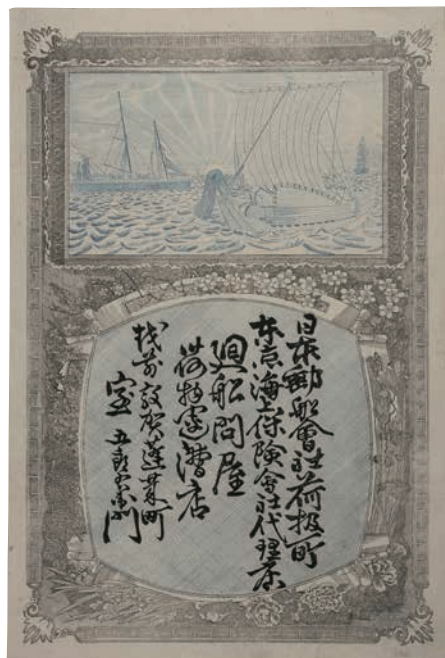 日本郵船會社荷扱所
東京海上保険會社代理店
廻船問屋
荷物運漕店
越前敦賀蓬莱町
室五郎右衛門